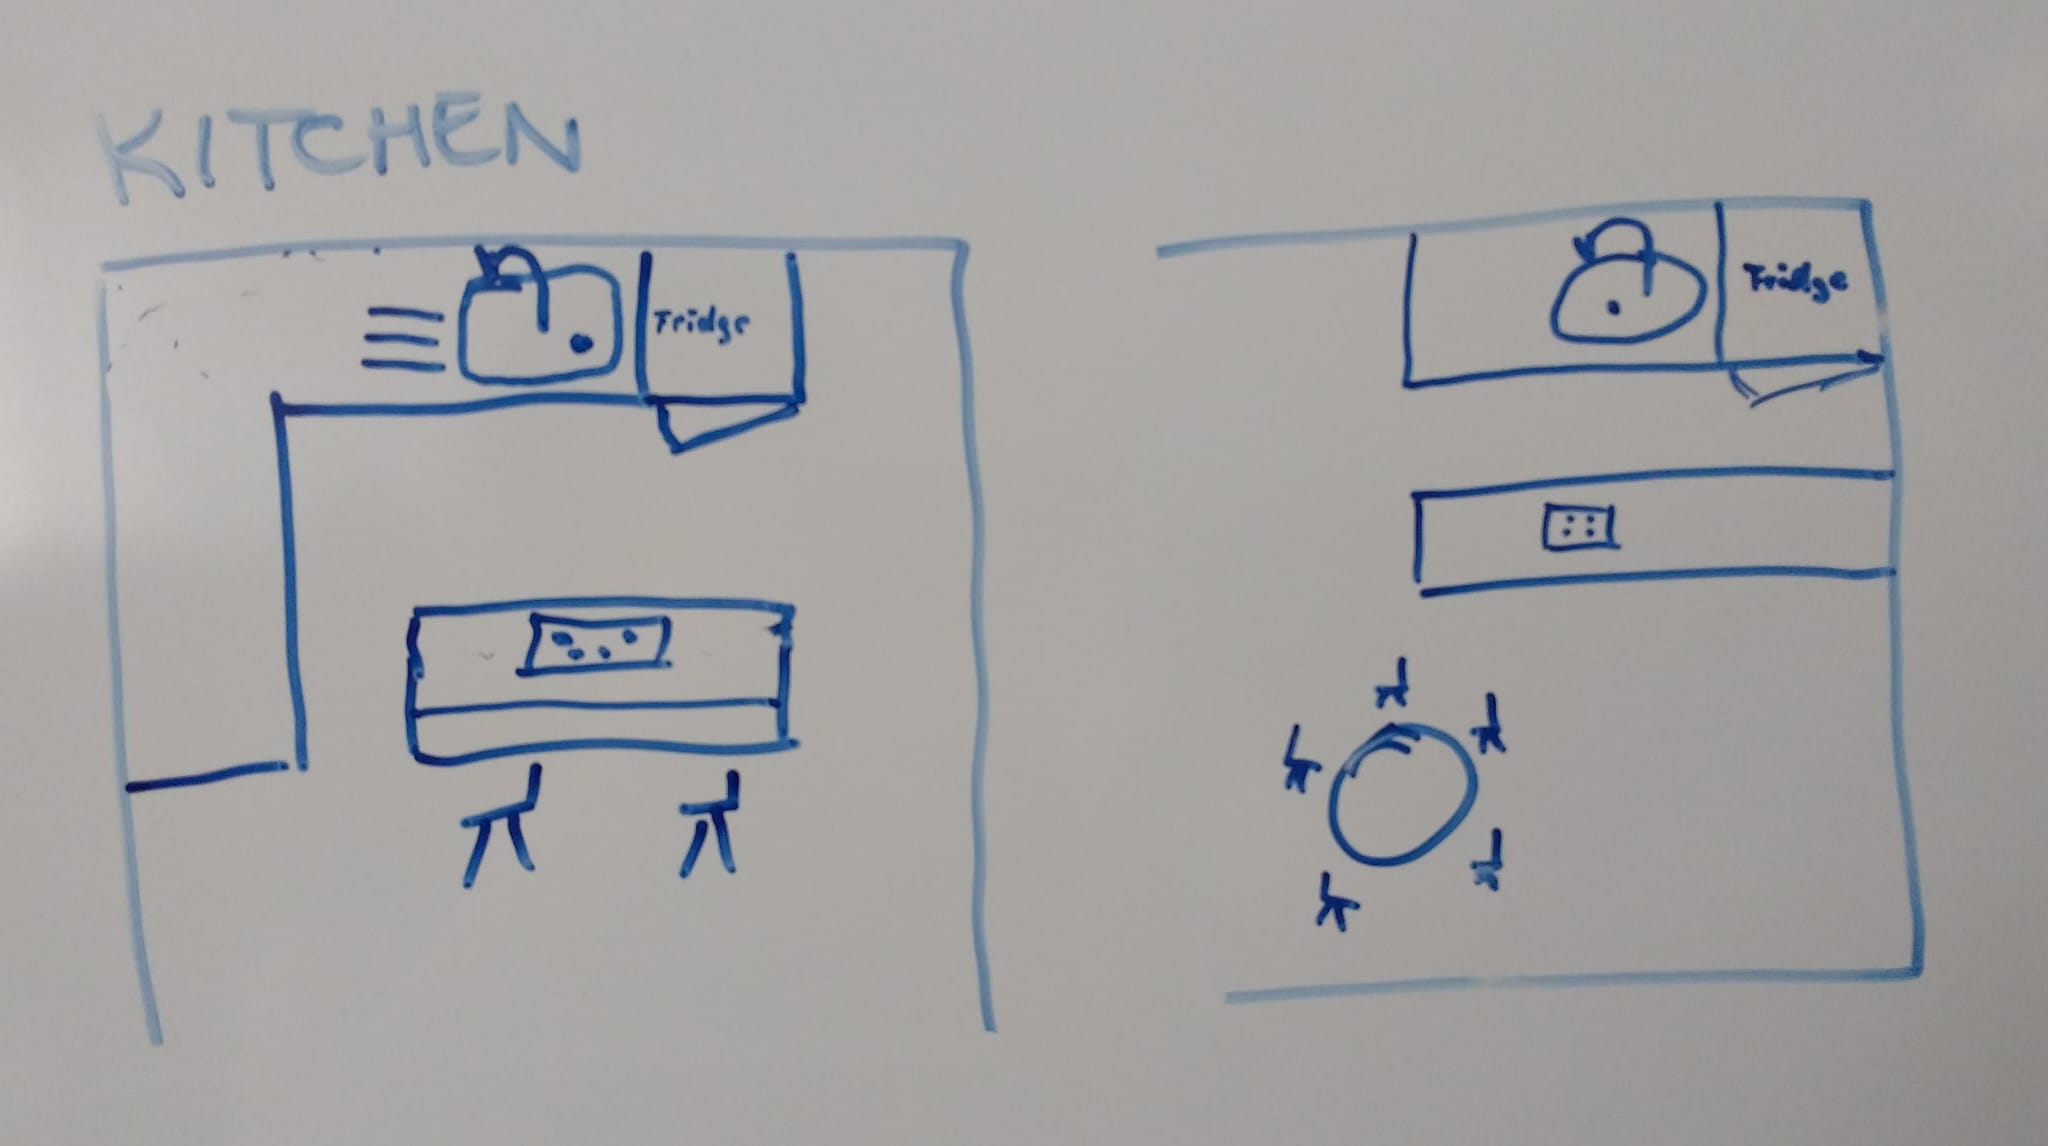 KITCHEN
Fridge
Fridge